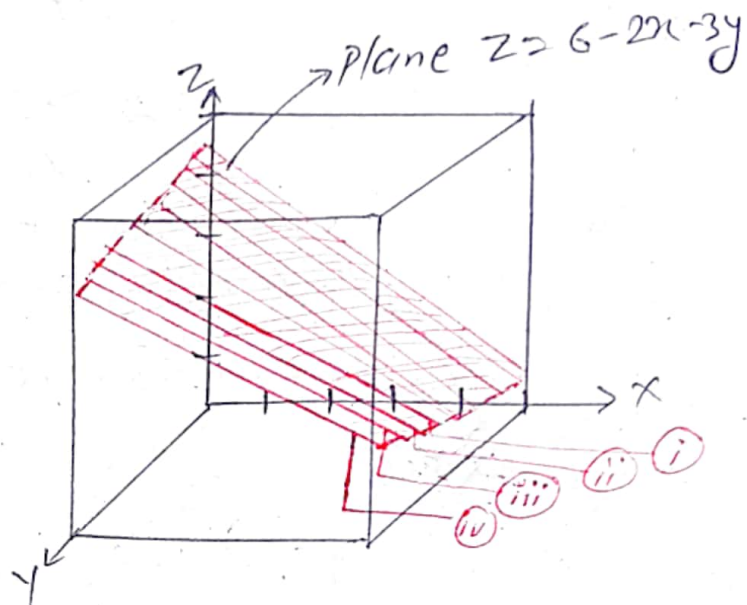 Plane Z = 6-2x-3y
Z
X
i
ii
iii
iv
Y